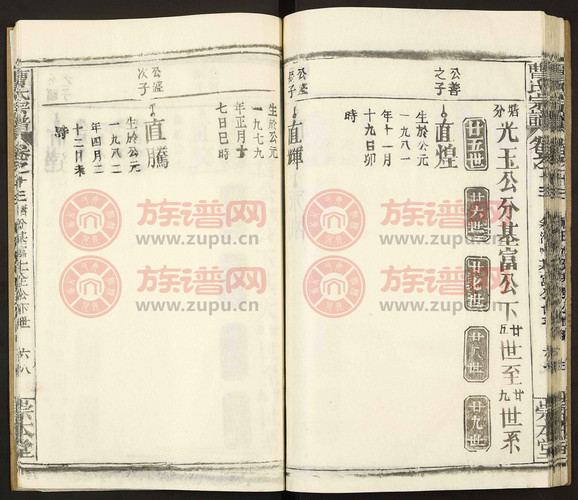 曹氏宗譜
崇本堂
光玉公分基富公下廿五世至廿九世系
廿五世
廿六世
廿七世
廿八世
廿九世
公善之子
直煌
生於公元
一九八一
年十一月
十九日卯
公盛
長子
直輝
生於公元
一九七九
年正月十
七日巳時
公盛
次子
直騰
生於公元
一九八二
年四月二
十二日未
時
曹氏宗譜
六八
崇本堂
族谱网
www.zupu.cn
族谱网
www.zupu.cn
族谱网
www.zupu.cn
族谱网
www.zupu.cn